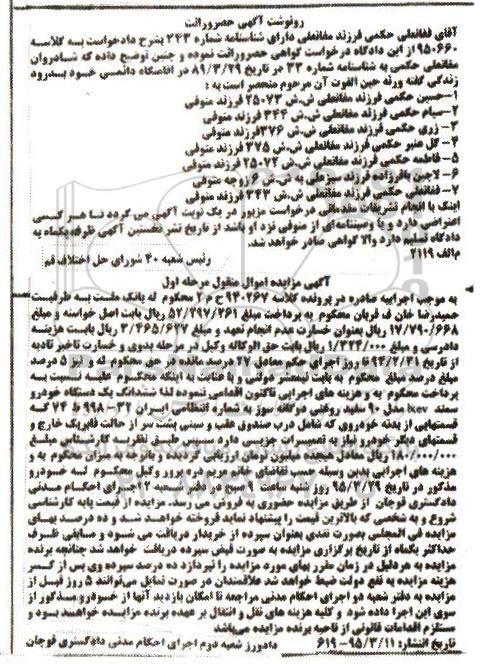 رونوشت آگهی حصروراثت
آقای فغانعلی حکمی فرزند مقانعلی دارای شناسنامه شماره ۲۴۳ بشرح دادخواست به کلاسه
۹۵۰۶۶۰ از این دادگاه درخواست گواهی حصروراثت نموده و چنین توضیح داده که شادروان
مقانعلی حکمی به شناسنامه شماره ۳۳ در تاریخ ۸۹/۳/۲۹ در اقامتگاه دائمی خود بدرود
زندگی گفته ورثه حین الفوت آن مرحوم منحصر است به :
۱-حسین حکمی فرزند مقانعلی ش.ش ۲۵۰۷۳ فرزند متوفی
۲-صیام حکمی فرزند مقانعلی ش.ش ۳۴۴ فرزند متوفی
۳- زری حکمی فرزند مقانعلی ش.ش ۳۷۶ فرزند متوفی
۴- گل عنبر حکمی فرزند مقانعلی ش.ش ۳۷۵ فرزند متوفی
۵- فاطمه حکمی فرزند مقانعلی ش.ش ۲۵۰۷۴ فرزند متوفی
۶- لاچین باقرزاده فرزند به ش.ش زوجه متوفی
۷- فغانعلی حکمی فرزند مقانعلی ش.ش ۲۴۳ فرزند متوفی
اینک با انجام تشریفات مقدماتی درخواست مزبور در یک نوبت آگهی می گردد تا هر کسی
اعتراضی دارد و یا وصیتنامه‌ای از متوفی نزد او باشد از تاریخ نشر نخستین آگهی ظرف یکماه به
دادگاه تسلیم دارد والا گواهی صادر خواهد شد.
م‌الف ۲۱۱۹
رئیس شعبه ۴۰ شورای حل اختلاف قم
آگهی مزایده اموال منقول مرحله اول
به موجب اجراییه صادره در پرونده کلاسه ۹۴۰۲۶۷ ج ۲ محکوم له بانک ملت به طرفیت
حمیدرضا خان ف قربان محکوم به پرداخت مبلغ ۵۲/۲۹۷/۲۶۱ ریال بابت اصل خواسته و مبلغ
۱۷/۷۹۰/۶۶۸ ریال بعنوان خسارت عدم انجام تعهد و مبلغ ۳/۴۶۵/۶۲۷ ریال بابت هزینه
دادرسی و مبلغ ۱/۳۲۴/۰۰۰ ریال بابت حق الوکاله وکیل در مرحله بدوی و خسارت تاخیر تادیه
از تاریخ ۹۴/۲/۳۱ تا روز اجرای حکم معادل ۲۷ درصد مانده در حق محکوم له و ۵ درصد
مبلغ درصد مبلغ محکوم به بابت نیمعشر دولتی و با عنایت به اینکه محکوم علیه نسبت به
پرداخت محکوم به و هزینه های اجرایی تاکنون اقدامی ننموده لذا ششدانگ یک دستگاه خودرو
سمند مدل ۹۰ سفید روغنی دوگانه سوز به شماره انتظامی ایران ۹۹۸-۳۲ ط ۷۴ که
قسمتهایی از بدنه خودروی که شامل درب صندوق عقب و سینی پشت سر از حالت فابریک خارج و
قسمتهای دیگر خودرو نیاز به تعمیرات جزیی دارد سپس طبق نظریه کارشناس مبلغ
۱۸۰/۰۰۰/۰۰۰ ریال معادل هیجده میلیون تومان ارزیابی گردیده و باتوجه به میزان محکوم به و
هزینه های اجرایی بدین وسیله حسب تقاضای خانم مریم دره پرور وکیل محکوم له خودرو
مذکور در تاریخ ۹۵/۳/۲۹ روز ساعت ۹ صبح در دفتر شعبه ۲ اجرای احکام مدنی
دادگستری قوچان از طریق مزایده حضوری به فروش می رسد. مزایده از قیمت پایه کارشناسی
شروع و به شخصی که بالاترین قیمت را پیشنهاد نماید فروخته خواهد شد و ده درصد بهای
مزایده فی المجلس بصورت نقدی بعنوان سپرده از خریدار دریافت می شود و مابقی ظرف
حداکثر یکماه از تاریخ برگزاری مزایده به صورت فیش سپرده دریافت خواهد شد چنانچه برنده
مزایده به هر دلیل در زمان مقرر بهای مورد مزایده را نپردازد ده درصد سپرده وی پس از کسر
هزینه مزایده به نفع دولت ضبط خواهد شد علاقمندان در صورت تمایل می‌توانند ۵ روز قبل از
مزایده به دفتر شعبه دو اجرای احکام مدنی مراجعه تا امکان بازدید آنها از خودرو مذکور از
سوی این اجرا داده شود و کلیه هزینه های نقل و انتقال بر عهده برنده مزایده خواهد بود و
مستلزم اقدامات قانونی از ناحیه برنده مزایده می‌باشد
تاریخ انتشار: ۹۵/۳/۱۱-۶۱۹ دادورز شعبه دوم اجرای احکام مدنی دادگستری قوچان